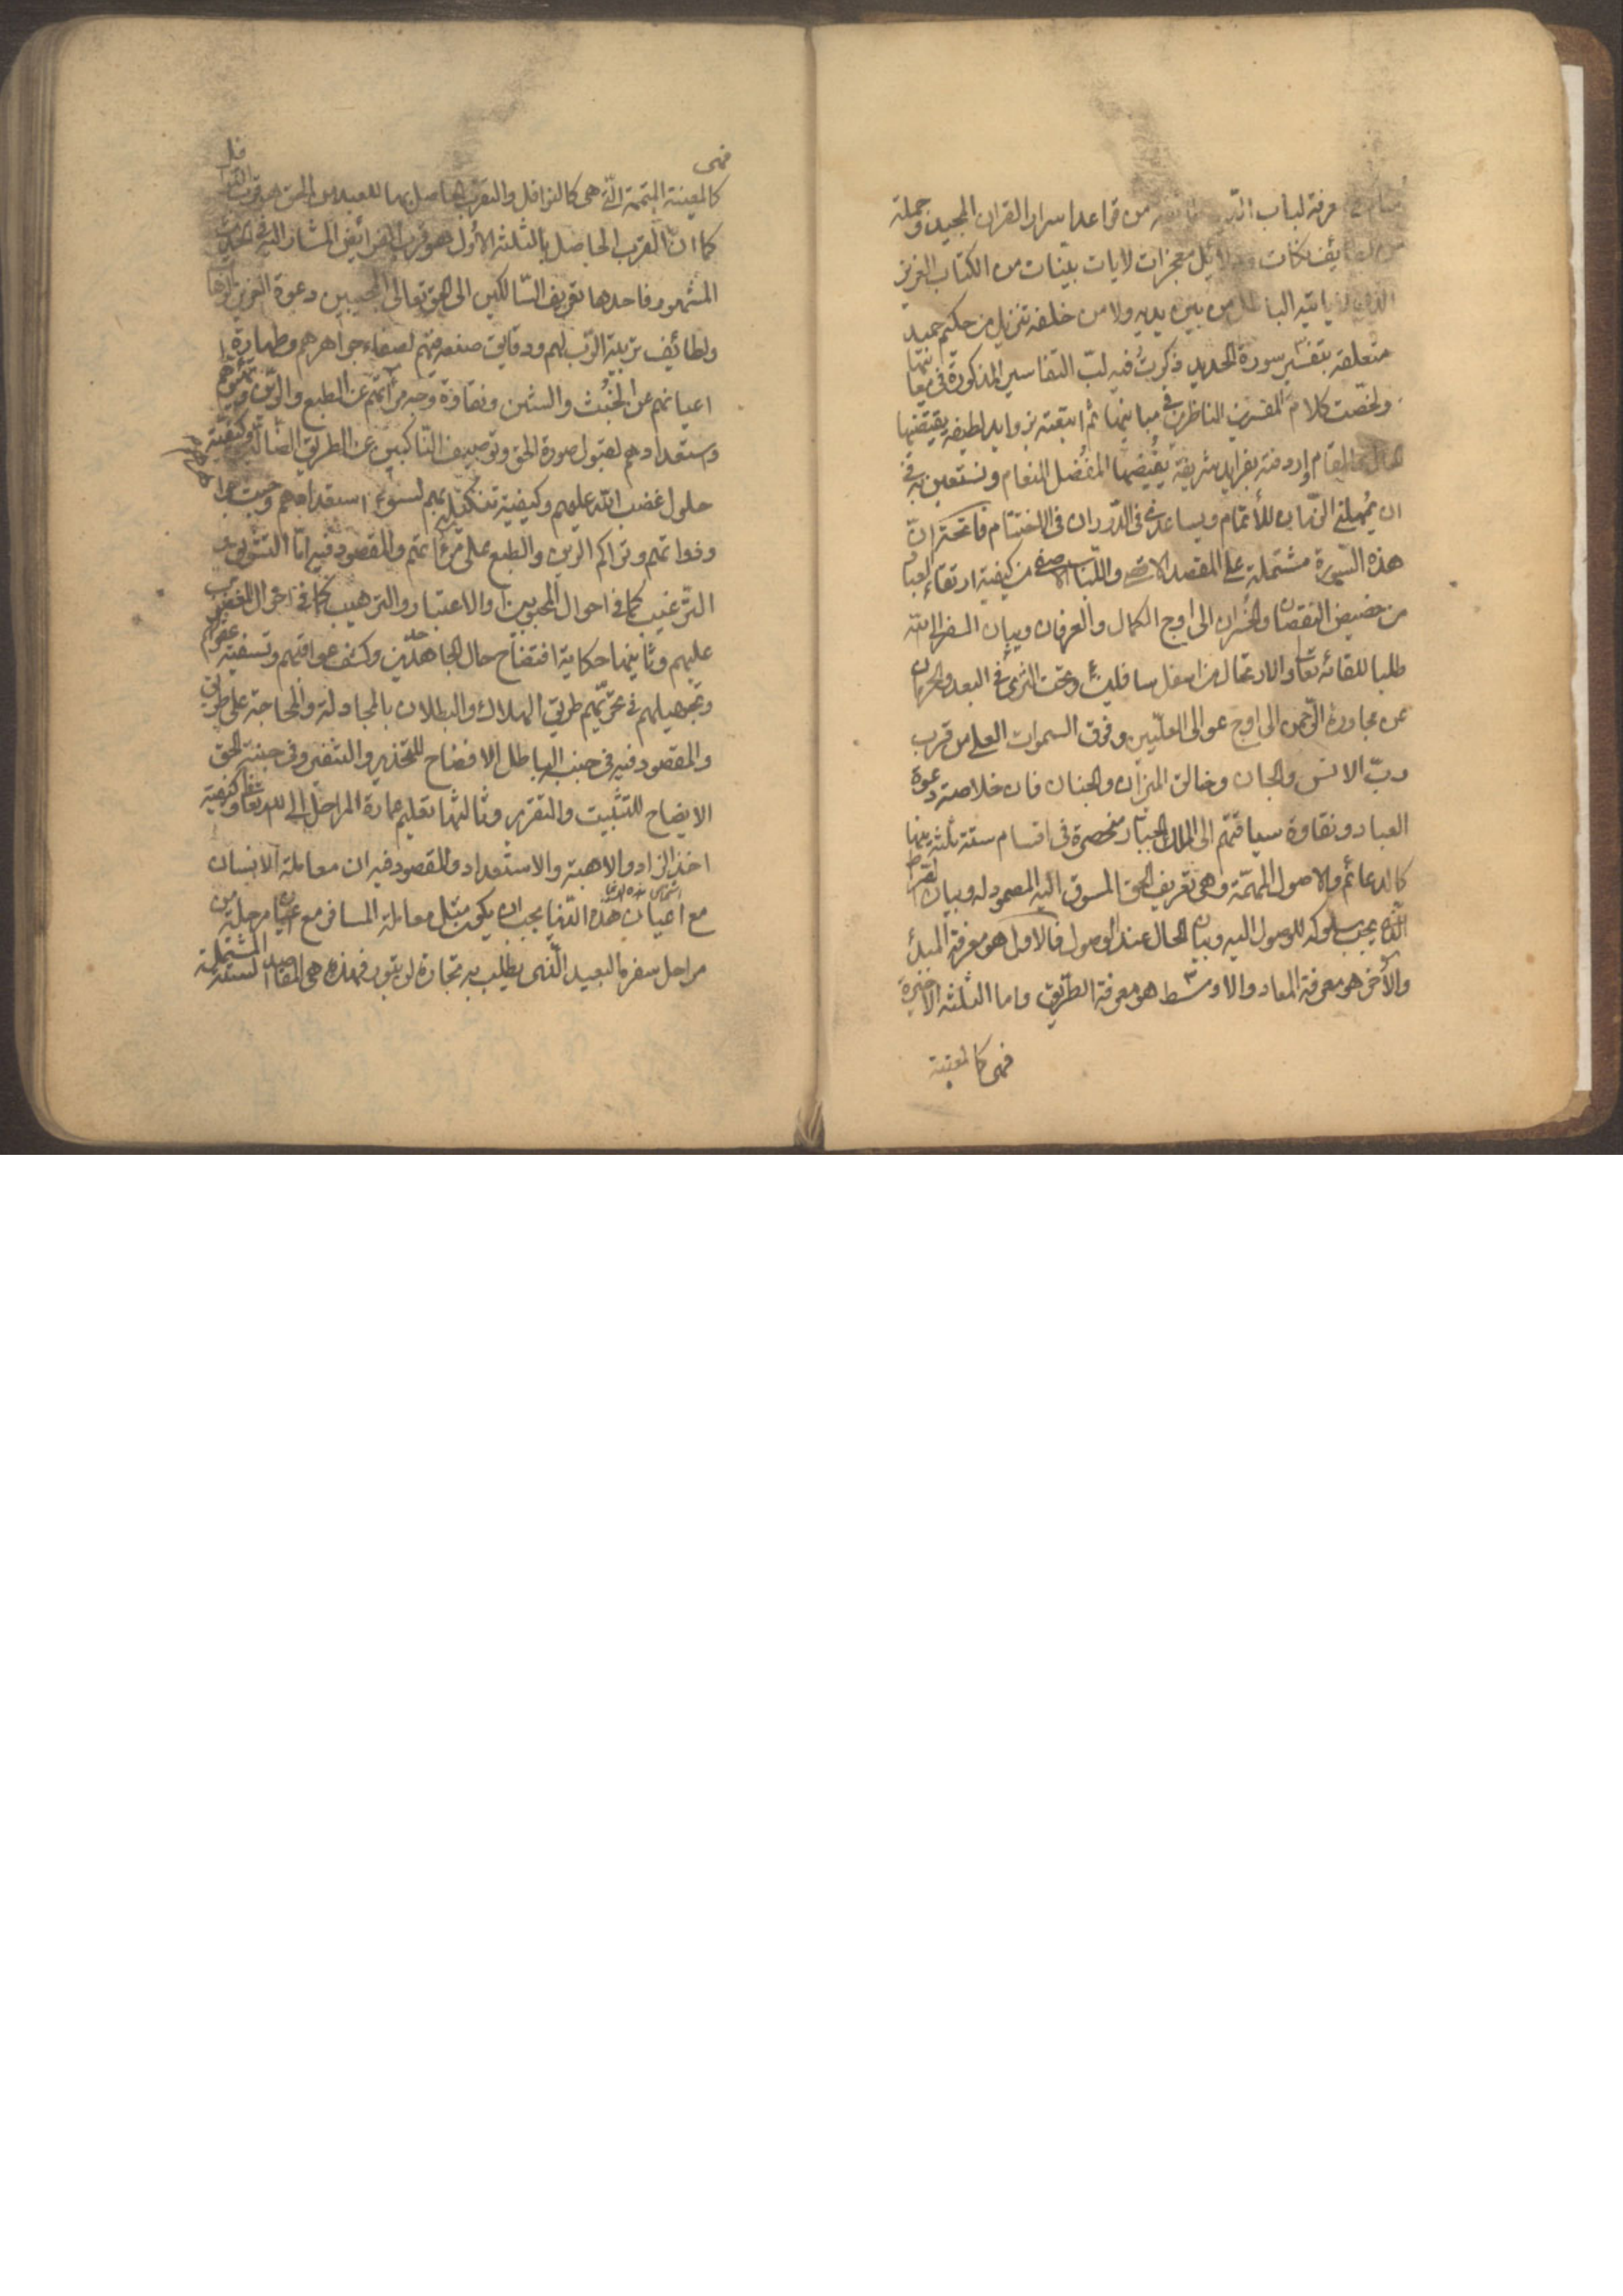 معرفة لباب من قواعد اسرار القران المجيد وجملة
نكات ودلايل معجزات لايات بينات من الكتاب العزيز
الذى لا ياتيه الباطل من بين يديه ولا من خلفه تنزيل من حكيم حميد
متعلقة بتفسير سورة الحديد ذكرت فيه لبّ التفاسير المذكورة فى معانيها
ولخصت كلام المفسرين الناظرين فى مبانيها ثم اتبعته بزوايد لطيفه يقتضيها
المقام واردفته بفرايد شريفة يفيضها المفضل المنعام ونستعين به فى
ان يمهلنى الزمان للأتمام ويساعدنى الدوران فى الاختتام فاتحة ان
هذه السورة مشتملة على المقصد الاقصى واللباب الاصفى من كيفية ارتقاء العباد
من حضيض النقصان والخسران الى اوج الكمال والعرفان وبيان السفر الى الله
طلبا للقائه تعا والارتحال من اسفل سافلين وتحت الثرى فى البعد والحرمان
عن مجاورة الرّحمن الى اوج عوالى العلّيين وفوق السموات العلى من قرب
ربّ الانس والجان وخالق الميزان والجنان فان خلاصة دعوة
العباد ونقاوة سياقتهم الى الملك الجبّار منحصرة فى اقسام ستة ثلثة منها
كالدعائم والاصول المهمّة وهى تعريف الحق المسوق اليه المصمود له وبيان الصراط
الّذى يجب سلوكه للوصول اليه وبيان الحال عند الوصول فالاول هو معرفة المبدأ
والأخر هو معرفة المعاد والاوسط هو معرفة الطريق واما الثلثة الاخيرة
فهى كالمعينة
فهى
كالمعينة المتممة الّتى هى كالنوافل والتقرّب الحاصل بها للعبد من الحق هو قرب النوافل
كما انّ القرب الحاصل بالثلثة الأول هو قرب الفرائض المشار اليه فى الحديث
المشهور فاحدها تعريف السّالكين الى الحق تعالى المجيبين دعوة العزيز
ولطائف تربية الرّب لهم ودقايق صنعه فيهم لصفاء جواهرهم وطهارة
اعيانهم عن الخبث والشين ونقاوة وجه مرآتهم عن الطبع والرّين
واستعدادهم لقبول صورة الحق وتوصيف النّاكبين عن الطريق الضالّين وكيفيّة
حلول غضب اللّه عليهم وكيفية تنكيله بهم لسوء استعدادهم وخبث جوا
وذواتهم وتراكم الرين والطبع على مرأتهم والمقصود فيه امّا التشويق و
الترغيب كما فى احوال المحبوبين او الاعتبار والترهيب كما فى احوال المغضوب
عليهم وثانيها حكاية افتضاح حال الجاحدين وكشف عواقبهم وتسفيه عقولهم
وتجهيلهم فى تحرّيهم طريق الهلاك والبطلان بالمجادلة والمحاجة على طريق
والمقصود فيه فى جنب الباطل الافضاح للتحذير والتنفير وفى جنبة الحق
الايضاح للتثبيت والتقرير وثالثها تعليم عمارة المراحل الى اللّه تعا وكيفية
اخذ الزاد والاهبة والاستعداد والمقصود فيه ان معاملة الانسان
مع اعيان هذه الدّنيا يجب ان يكون مثل معاملة المسافر مع اعيان مرحلة من
مراحل سفره البعيد الّذى يطلب به تجارة لن تبور فهذه هى المقاصد الستة المشتملة